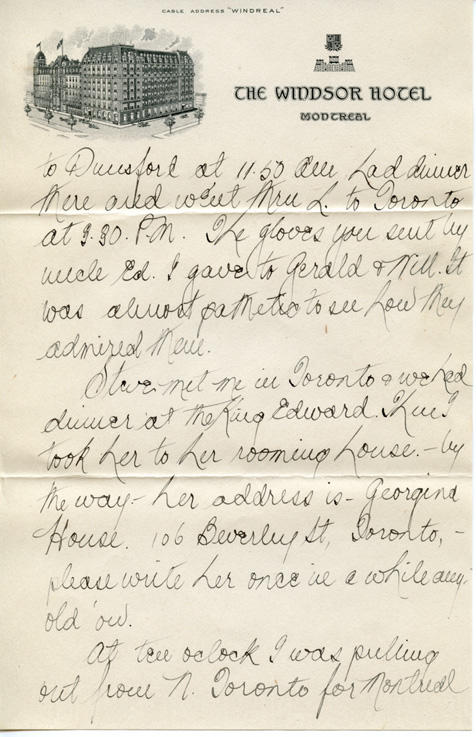 CABLE ADDRESS "WINDREAL"
THE WINDSOR HOTEL
MONTREAL
to Dunsford at 11.50 am had dinner
there and went thru L. to Toronto
at 3.30. P.M. The gloves you sent by
uncle Ed. I gave to Gerald & Will. It
was almost pathetic to see how they
admired them.
Steve met me in Toronto & we had
dinner at the King Edward. Then I
took her to her rooming house. - by
the way - her address is - Georgina
House. 106 Beverley St, Toronto, -
please write her once in a while any
old 'ow.
At ten oclock I was pulling
out from N. Toronto for Montreal